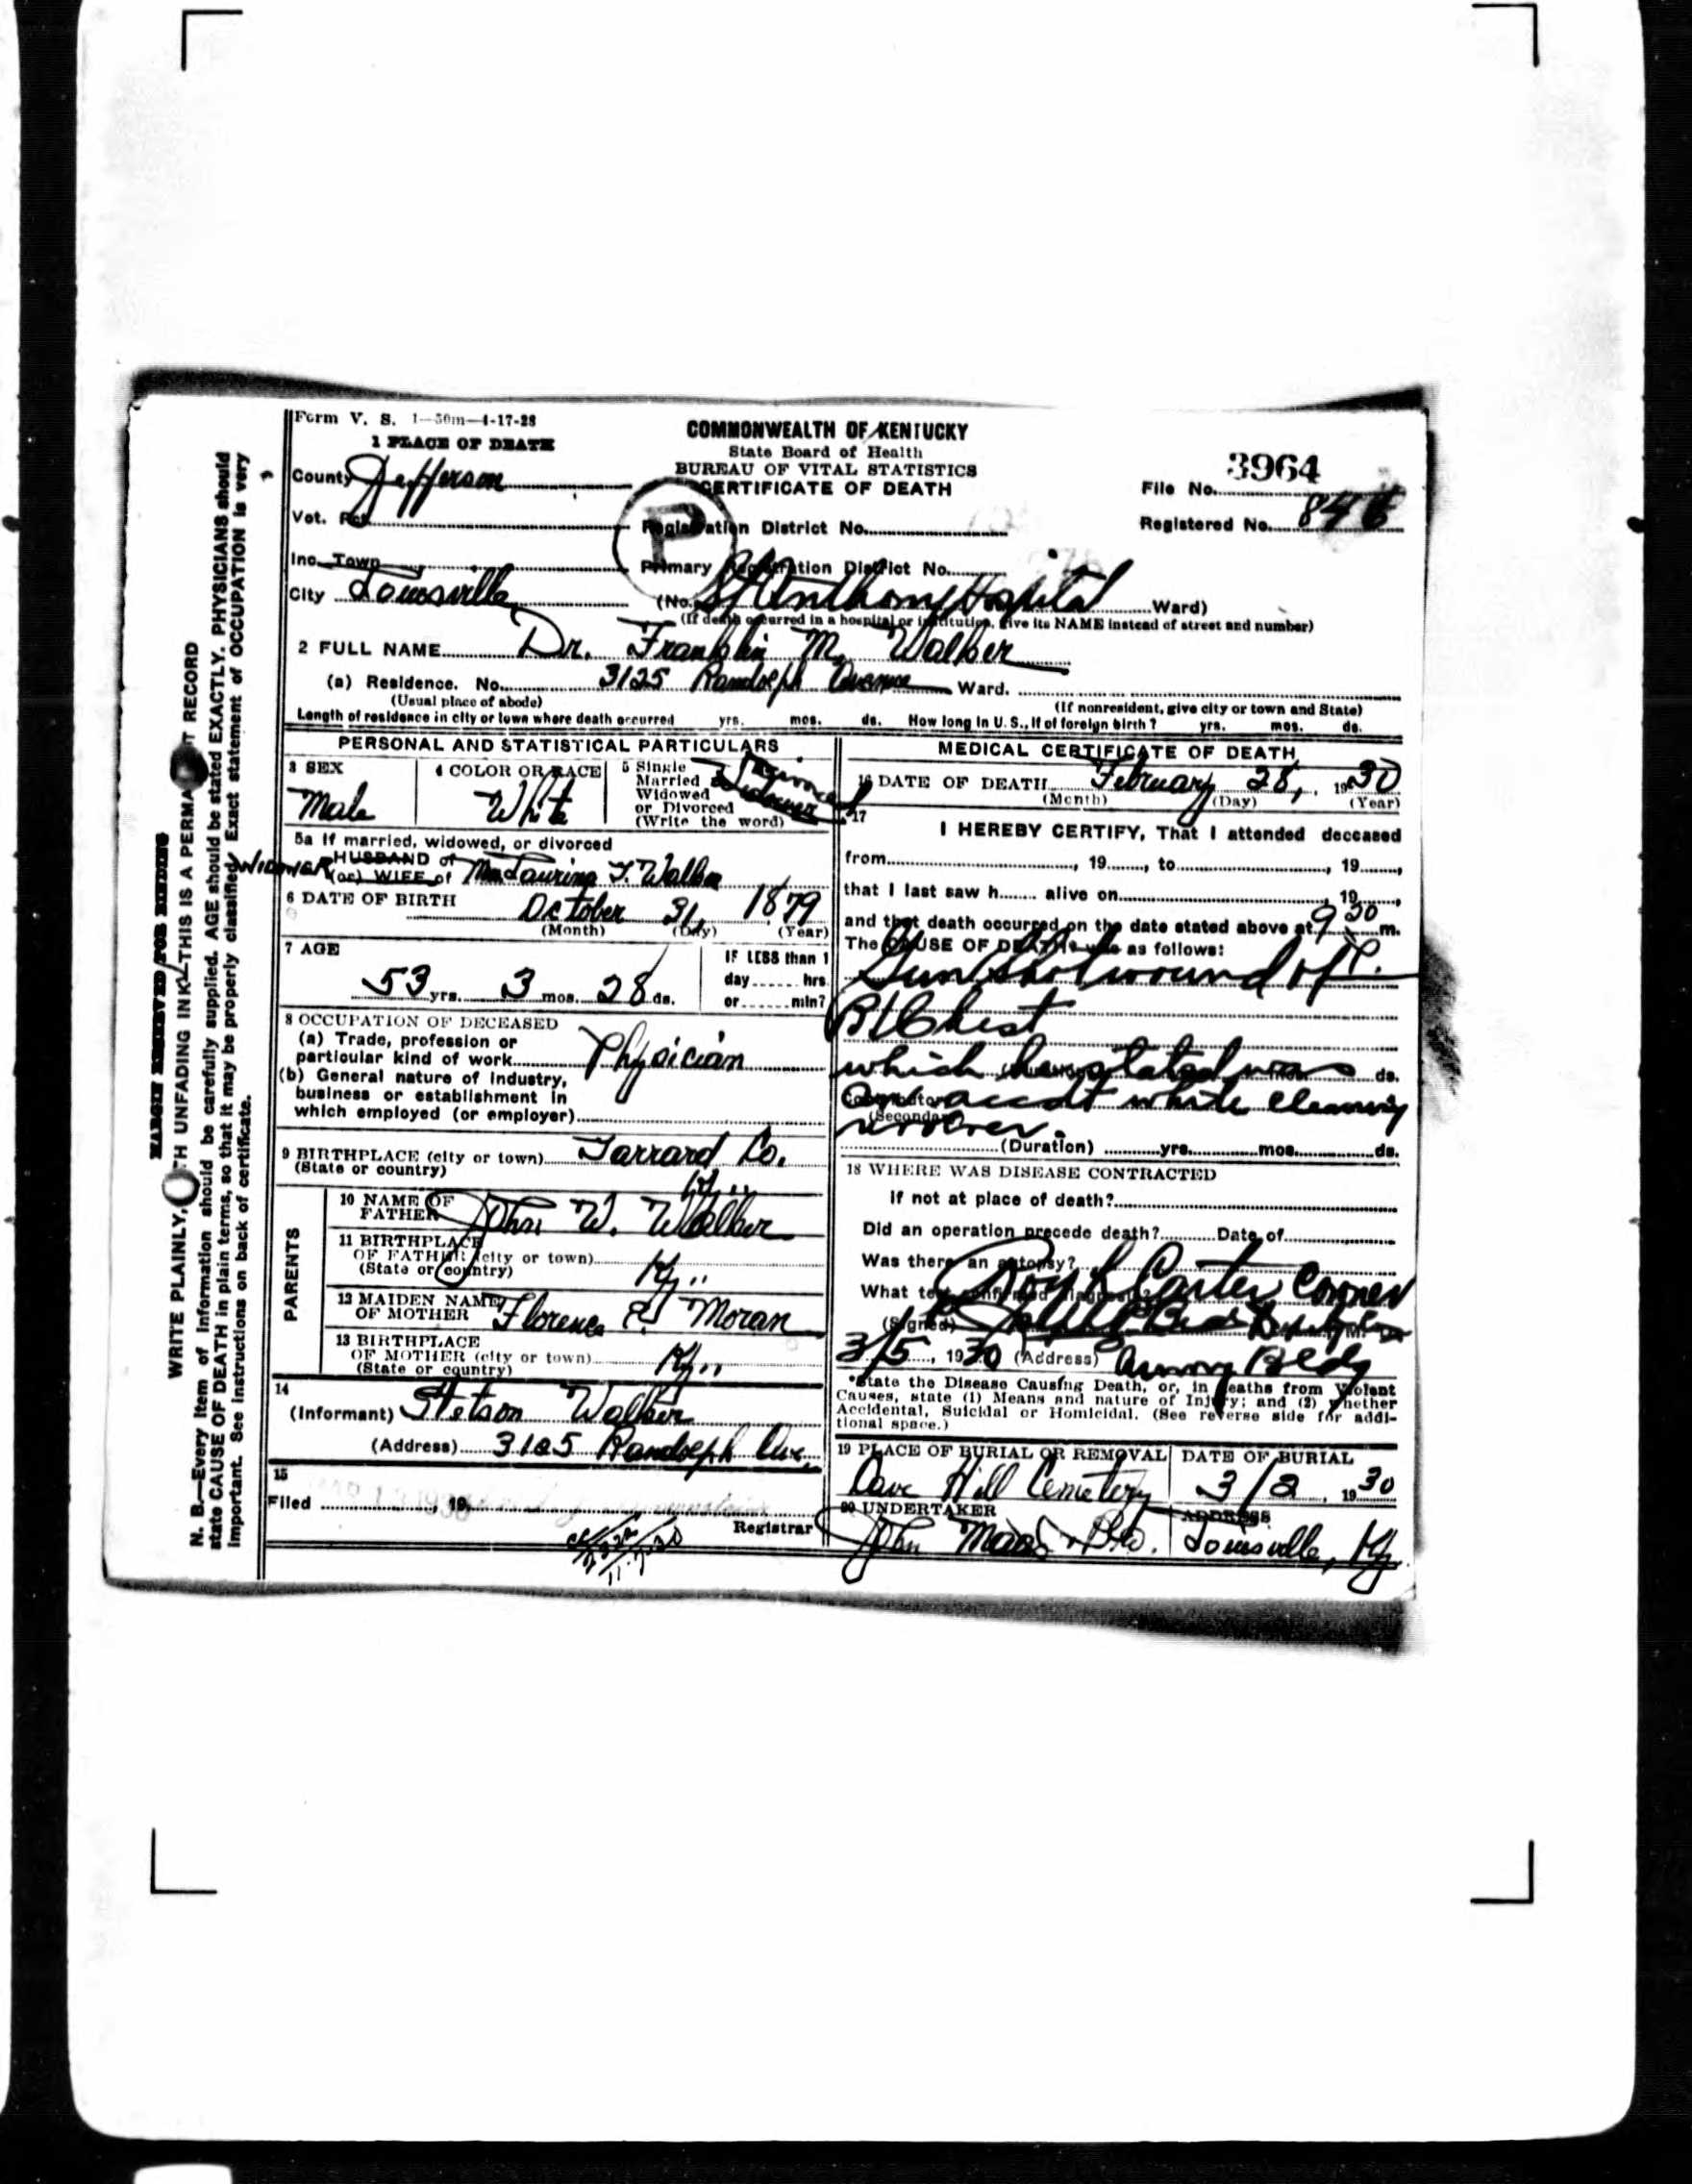 Form V. S. 1—50m—4-17-28
1 PLACE OF DEATH
COMMONWEALTH OF KENTUCKY
State Board of Health
BUREAU OF VITAL STATISTICS
CERTIFICATE OF DEATH
3964
File No.
Registered No. 846
County Jefferson
Vot. Pct.
Registration District No.
Inc. Town
Primary Registration District No.
City Louisville (No. St Anthony Hospital Ward)
(If death occurred in a hospital or institution, give its NAME instead of street and number)
2 FULL NAME Dr. Franklin M. Walker
(a) Residence. No. 3125 Randolph Avenue Ward.
(Usual place of abode) (If nonresident, give city or town and State)
Length of residence in city or town where death occurred yrs. mos. ds. How long in U. S., if of foreign birth? yrs. mos. ds.
PERSONAL AND STATISTICAL PARTICULARS
3 SEX
Male
4 COLOR OR RACE
White
5 Single
Married
Widowed
or Divorced
(Write the word)
Widower
5a If married, widowed, or divorced
WIDOWER HUSBAND of
(or) WIFE of Walker
6 DATE OF BIRTH October 31, 1879
(Month) (Day) (Year)
7 AGE
53 yrs. 3 mos. 28 ds.
IF LESS than 1
day hrs
or min?
8 OCCUPATION OF DECEASED
(a) Trade, profession or
particular kind of work Physician
(b) General nature of Industry,
business or establishment in
which employed (or employer)
9 BIRTHPLACE (city or town) Garrard Co.
(State or country) Ky.
PARENTS
10 NAME OF
FATHER John W. Walker
11 BIRTHPLACE
OF FATHER (city or town)
(State or country) Ky.
12 MAIDEN NAME
OF MOTHER Florence E. Moran
13 BIRTHPLACE
OF MOTHER (city or town)
(State or country) Ky.
14
(Informant) Stetson Walker
(Address) 3125 Randolph Ave.
15
Filed 19
Registrar
MEDICAL CERTIFICATE OF DEATH
16 DATE OF DEATH February 28, 1930
(Month) (Day) (Year)
17
I HEREBY CERTIFY, That I attended deceased
from, 19, to, 19,
that I last saw h alive on, 19,
and that death occurred on the date stated above at 9 30 P. m.
The CAUSE OF DEATH was as follows:
Gun shot wound of
Rt Chest
which he stated was ds.
an accdt while cleaning
Contributory
(Secondary)
revolver.
(Duration) yrs. mos. ds.
18 WHERE WAS DISEASE CONTRACTED
If not at place of death?
Did an operation precede death? Date of
Was there an autopsy?
What test confirmed diagnosis?
Roy L Carter Coroner
(Signed) M. D.
3/5, 1930 (Address) Armory Bldg
*State the Disease Causing Death, or, in deaths from Violent
Causes, state (1) Means and nature of Injury; and (2) whether
Accidental, Suicidal or Homicidal. (See reverse side for addi-
tional space.)
19 PLACE OF BURIAL OR REMOVAL
Cave Hill Cemetery
DATE OF BURIAL
3/2, 1930
20 UNDERTAKER
John Maas & Bro.
ADDRESS
Louisville, Ky.
MARGIN RESERVED FOR BINDING
WRITE PLAINLY, WITH UNFADING INK—THIS IS A PERMANENT RECORD
N. B.—Every item of information should be carefully supplied. AGE should be stated EXACTLY. PHYSICIANS should
state CAUSE OF DEATH in plain terms, so that it may be properly classified. Exact statement of OCCUPATION is very
important. See instructions on back of certificate.